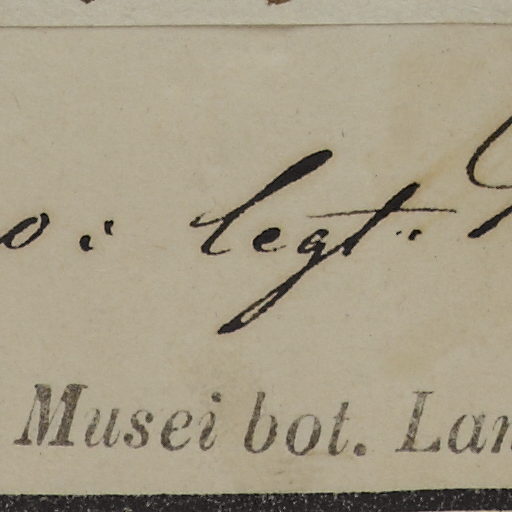 o: legt.
Musei bot. Lan